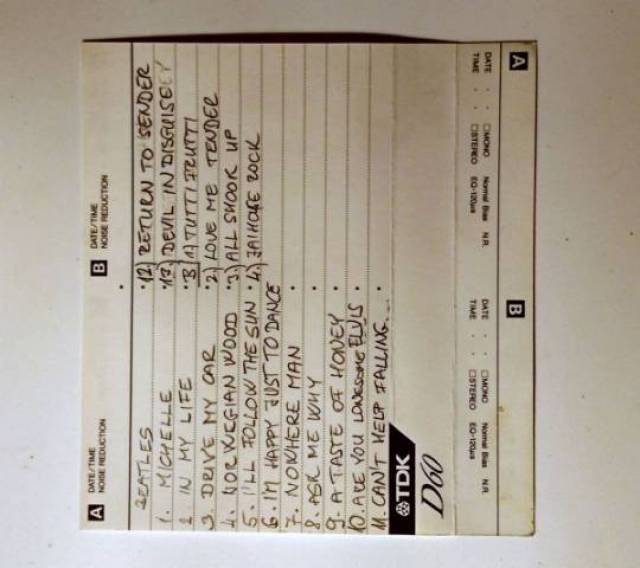 A DATE/TIME
NOISE REDUCTION
B DATE/TIME
NOISE REDUCTION
BEATLES
1. MICHELLE
2 IN MY LIFE
3. DRIVE MY CAR
4. NORWEGIAN WOOD
5. I'LL FOLLOW THE SUN
6. I'M HAPPY JUST TO DANCE
7. NOWHERE MAN
8. ASK ME WHY
9. A TASTE OF HONEY
10. ARE YOU LONESOME ELVIS
11. CAN'T HELP FALLING...
12) RETURN TO SENDER
13. DEVIL IN DISGUISE
B 1) TUTTI FRUTTI
2) LOVE ME TENDER
3. ALL SHOOK UP
4) JAIHOUSE ROCK
TDK
D60
A
DATE
TIME
MONO
STEREO
Normal Bias
EQ-120µs
N.R.
B
DATE
TIME
MONO
STEREO
Normal Bias
EQ-120µs
N.R.